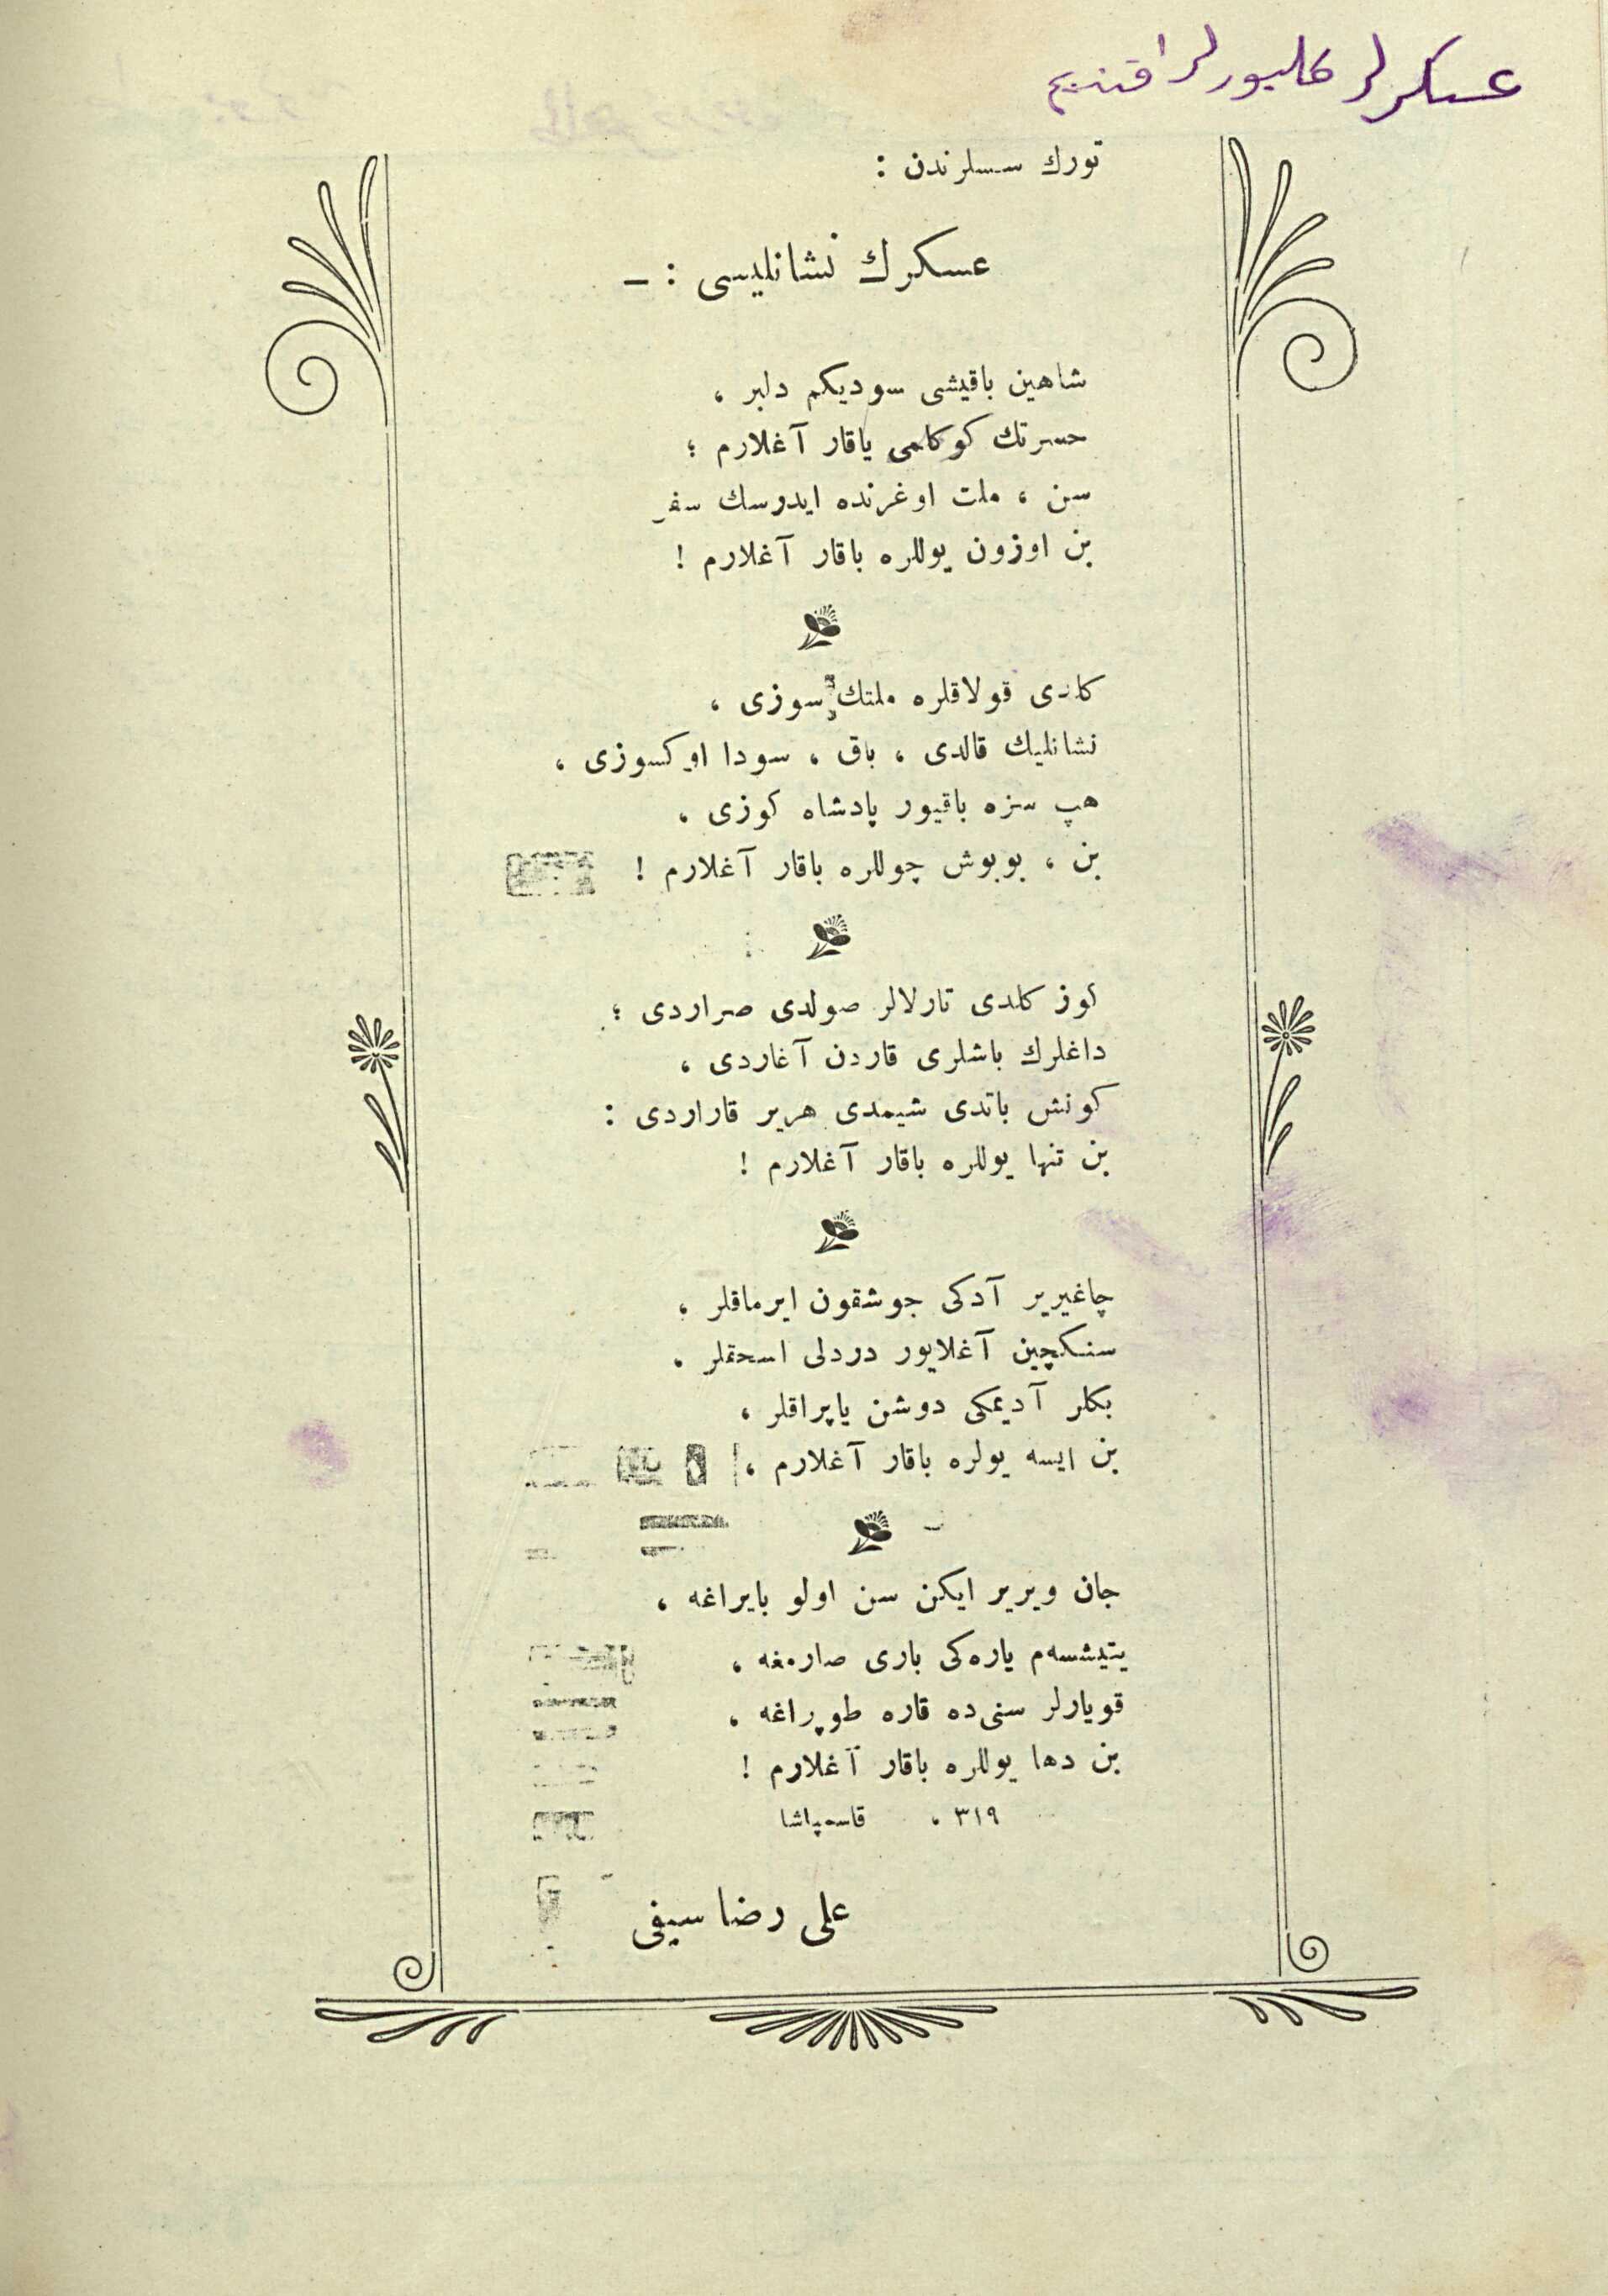 عسكرلر كليورلر افنديم
تورك سسلرندن :
عسكرك نشانليسى : –
شاهين باقيشى سوديكم دلبر ،
حسرتك كوكلمى ياقار آغلارم ؛
سن ، ملت اوغرنده ايدرسك سفر
بن اوزون يوللره باقار آغلارم !
كلدى قولاقلره ملتك سوزى ،
نشانليك قالدى ، باق ، سودا اوكسوزى ،
هپ سزه باقيور پادشاه كوزى .
بن ، بوبوش چوللره باقار آغلارم !
كوز كلدى تارلالر صولدى صراردى ؛
داغلرك باشلرى قاردن آغاردى ،
كونش باتدى شيمدى هرير قاراردى :
بن تنها يوللره باقار آغلارم !
چاغيرير آدكى جوشقون ايرماقلر ،
سنكچين آغلايور دردلى
بكلر آديمكى دوشن ياپراقلر ،
بن ايسه يولره باقار آغلارم ،
جان ويرير ايكن سن اولو بايراغه ،
يتيشسه‌م ياره‌كى بارى صارمغه ،
قويارلر سنى‌ده قاره طوپراغه ،
بن دها يوللره باقار آغلارم !
٣١٩ ، قاسمپاشا
على رضا سيفى